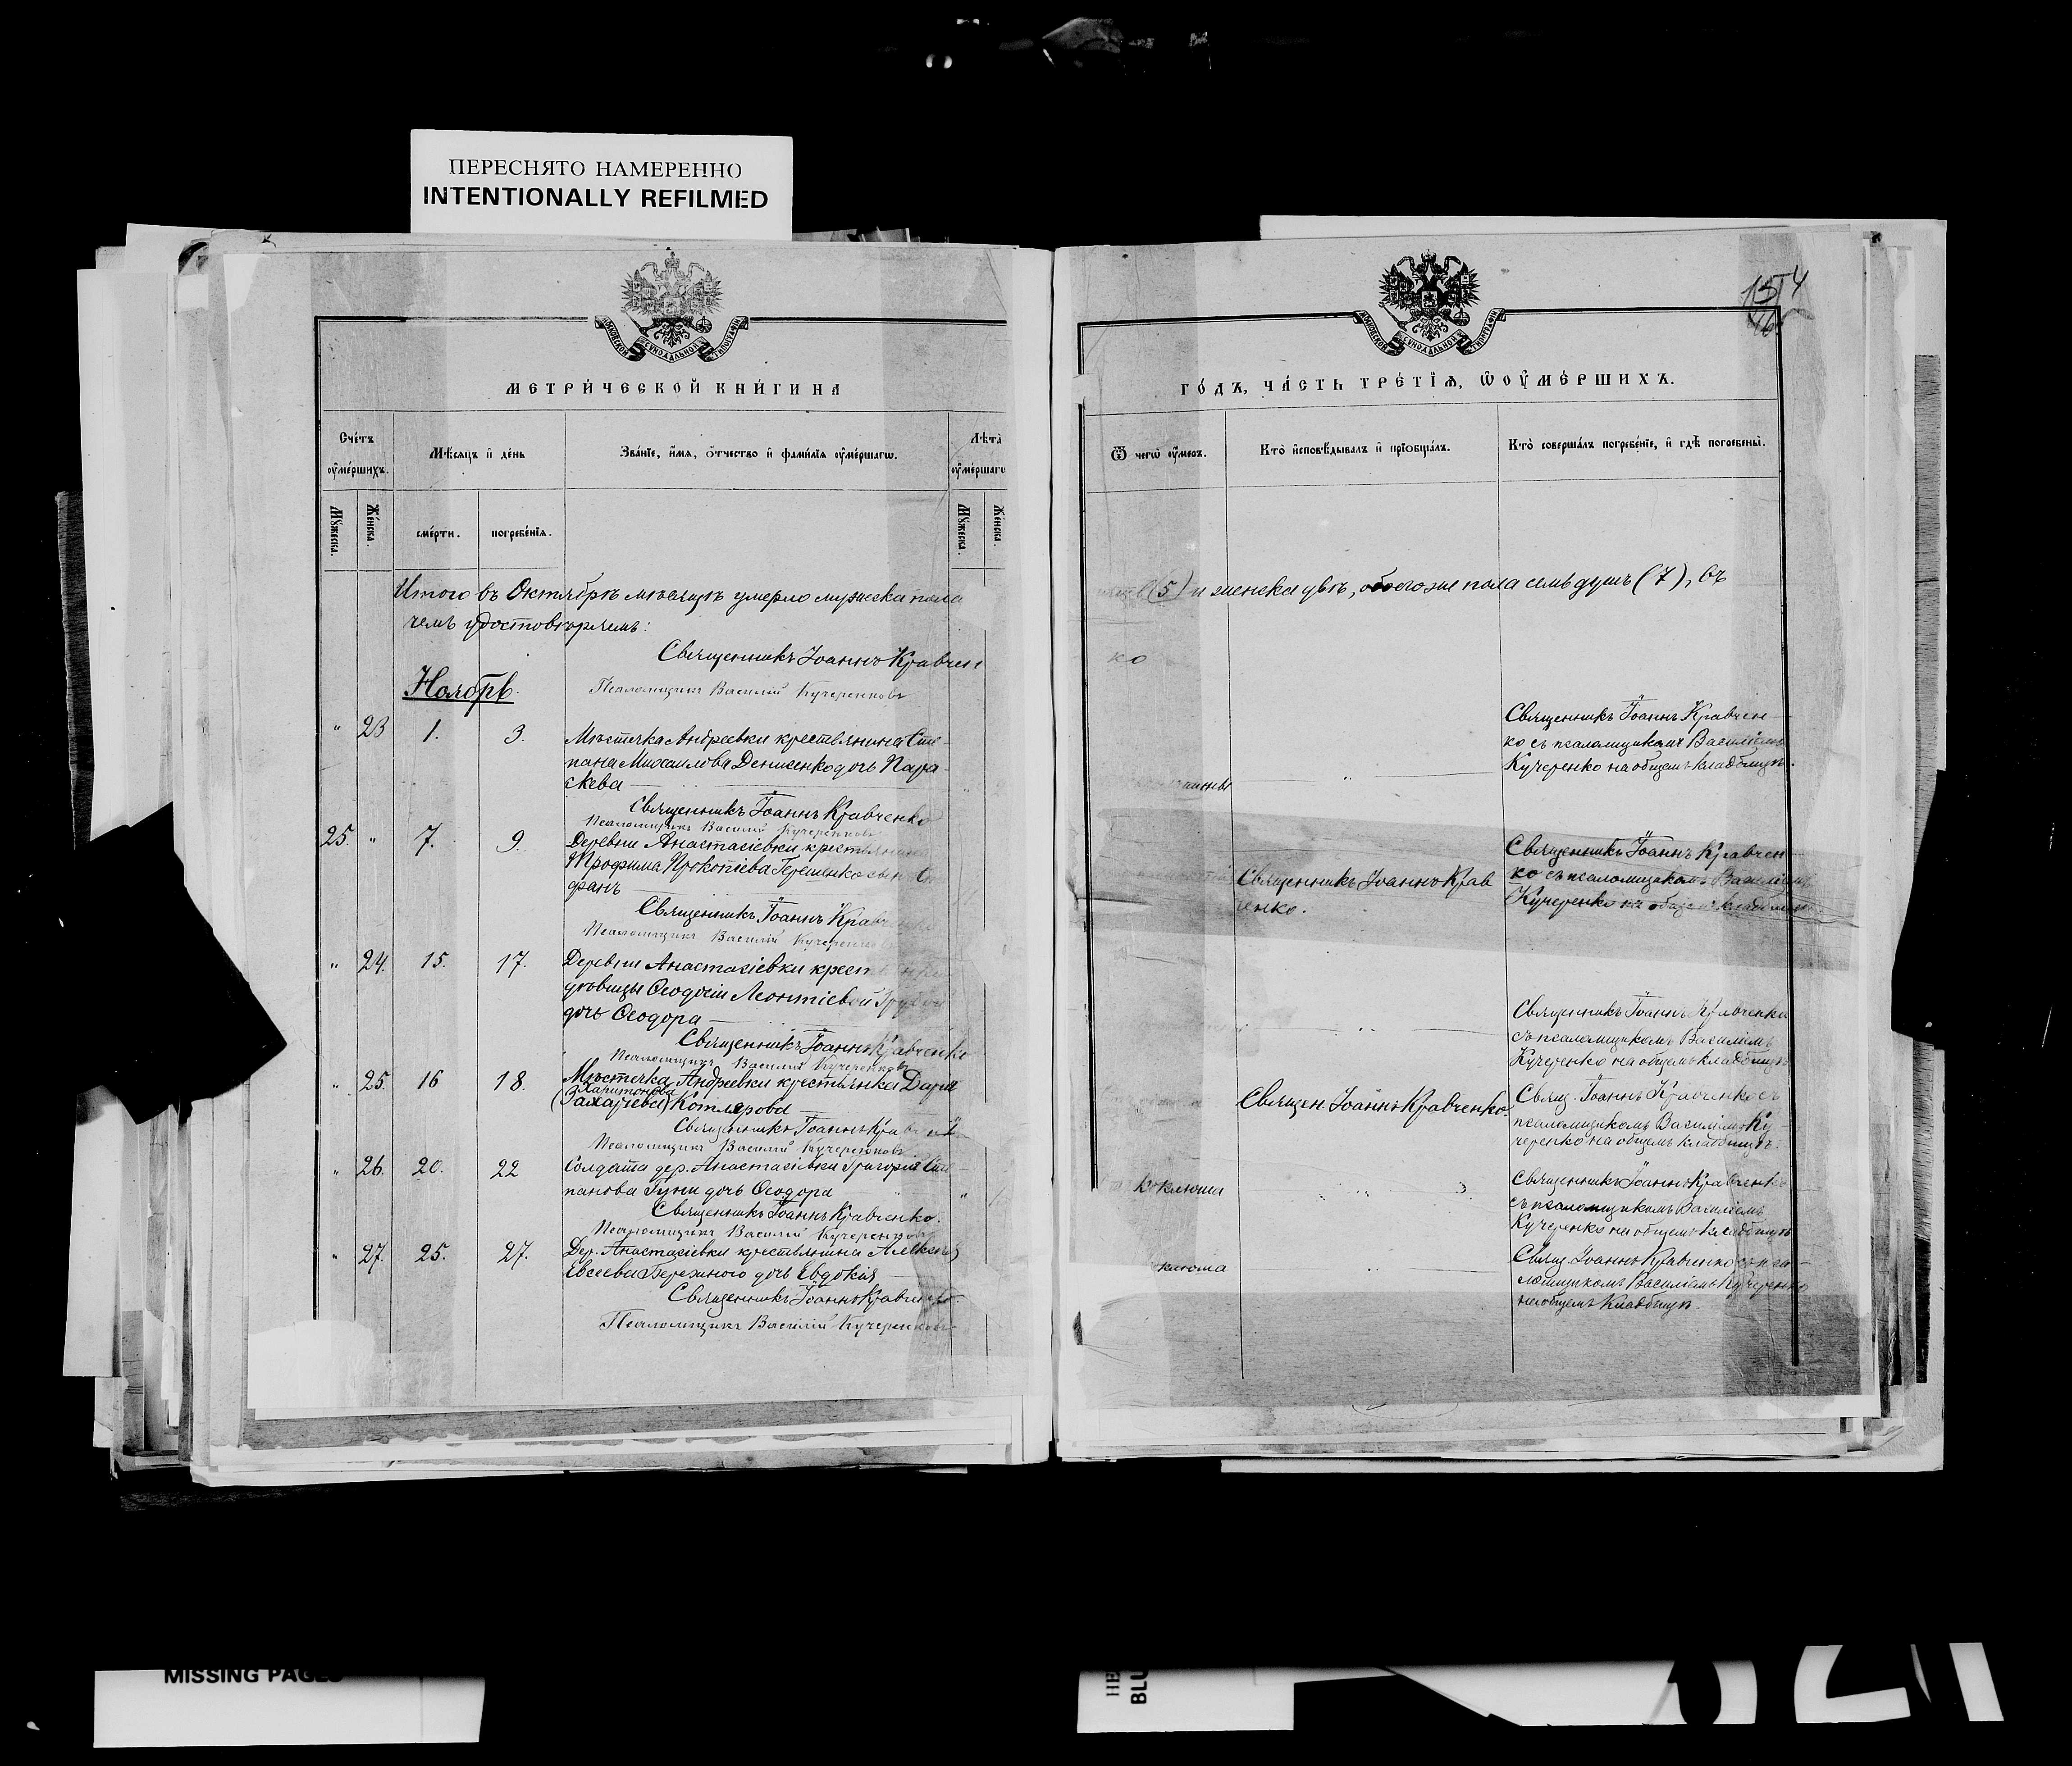 ПЕРЕСНЯТО НАМЕРЕННО
INTENTIONALLY REFILMED
МОСКОВСКОЙ СѴНОДАЛЬНОЙ ТИПОГРАФІИ
МЕТРИ́ЧЕСКОЙ КНИ́ГИ НА
Сче́тъ ᲂу҆ме́ршихъ.
Мѣ́сяцъ и҆ де́нь
Зва́нїе, и҆́мѧ, ѻ҆́тчество и҆ фами́лїѧ ᲂу҆ме́ршагѡ.
Лѣ́та ᲂу҆ме́ршагѡ
Мꙋ́жеска.
Же́нска.
сме́рти.
погребе́нїѧ.
Мꙋ́жеска.
Же́нска.
Итого въ Октябрѣ мѣсяцѣ умерло мужеска пола
чемъ удостовѣряемъ:
Священникъ Іоаннъ Кравчен
Ноябрь.
Псаломщикъ Василій Кучеренковъ
" 23 1. 3. Мѣстечка Андреевки крестьянина Сте-
пана Михаилова Денисенко дочь Пара-
скева
Священникъ Іоаннъ Кравченко
Псаломщикъ Василій Кучеренковъ
25. " 7. 9. Деревни Анастасіевки крестьянина
Трофима Прокопіева Герешенко сынъ
фанъ
Священникъ Іоаннъ Кравченко
Псаломщикъ Василій Кучеренковъ
" 24. 15. 17. Деревни Анастасіевки крест
дѣвицы Ѳеодосіи Леонтіевой
дочь Ѳеодора
Священникъ Іоаннъ Кравченко
Псаломщикъ Василій Кучеренковъ
" 25. 16 18. Мѣстечка Андреевки крестьянка Дарія
Харитонова
(Захаріева) Котлярова
Священникъ Іоаннъ Кравченко
Псаломщикъ Василій Кучеренковъ
" 26. 20. 22 Солдата дер. Анастасіевки Григорія Сте-
панова Гуни дочь Ѳеодора "
Священникъ Іоаннъ Кравченко.
Псаломщикъ Василій Кучеренковъ
" 27. 25. 27. Дер. Анастасіевки крестьянина Алексѣя
Евсеева Бережного дочь Евдокія
Священникъ Іоаннъ Кравченко
Псаломщикъ Василій Кучеренковъ
154
МОСКОВСКОЙ СѴНОДАЛЬНОЙ ТИПОГРАФІИ
ГО́ДЪ, ЧА́СТЬ ТРЕ́ТЇѦ, Ѡ҆ ОУ҆МЕ́РШИХЪ.
Ѿ чегѡ̀ ᲂу҆́меръ.
Кто̀ и҆сповѣ́дывалъ и҆ прїѡбща́лъ.
Кто̀ соверша́лъ погребе́нїе, и҆ гдѣ̀ погребены̀.
(5) и женска двѣ, обоего же пола семь душъ (7), въ
ко
Священникъ Іоаннъ Кравчен-
ко съ псаломщикомъ Василіемъ
Кучеренко на общемъ кладбищѣ.
"
Священникъ Іоаннъ Крав
ченко.
Священникъ Іоаннъ Кравчен-
ко съ псаломщикомъ Василіемъ
Кучеренко на общемъ кладбищѣ
"
Священникъ Іоаннъ Кравченко
съ псаломщикомъ Василіемъ
Кучеренко на общемъ кладбищѣ
Священ. Іоаннъ Кравченко
Свящ. Іоаннъ Кравченко съ
псаломщикомъ Василіемъ Ку-
черенко на общемъ кладбищѣ.
коклюша
Священникъ Іоаннъ Кравченко
съ псаломщикомъ Василіемъ
Кучеренко на общемъ кладбищѣ
клюша
Свящ. Іоаннъ Кравченко съ пса-
ломщикомъ Василіемъ Кучеренко
на общемъ кладбищѣ.
MISSING PAGES
НЕ
BLU